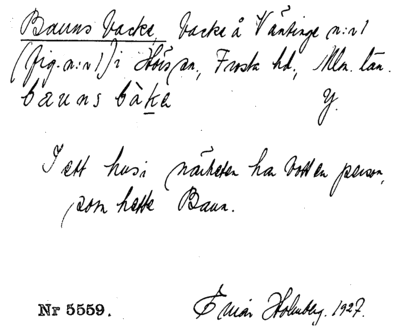 Bauns backe, backe å Väntinge n:r 1
(fig. n:r 1) i Hörs sn, Frosta hd, Mlm. län.
bauns bàkɛ Y.
I ett hus i närheten har bott en person,
som hette Baun.
Nr 5559. Einar Holmberg. 1927.